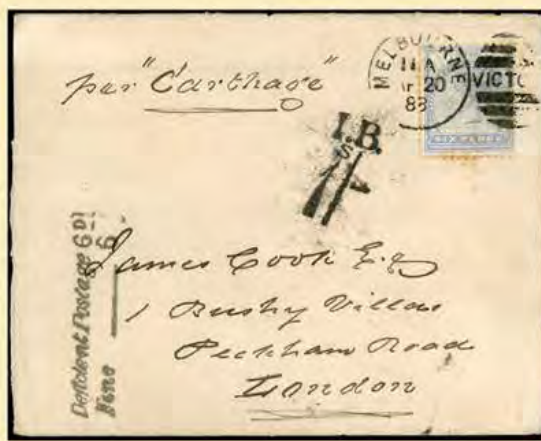 per "Carthage"
MELBOURNE
11 A
AP 20
88
VICTO
SIX PENCE
I.B.
Deficient Postage 6D
Fine 6
James Cook Esq
1 Bushy Villas
Peckham Road
London